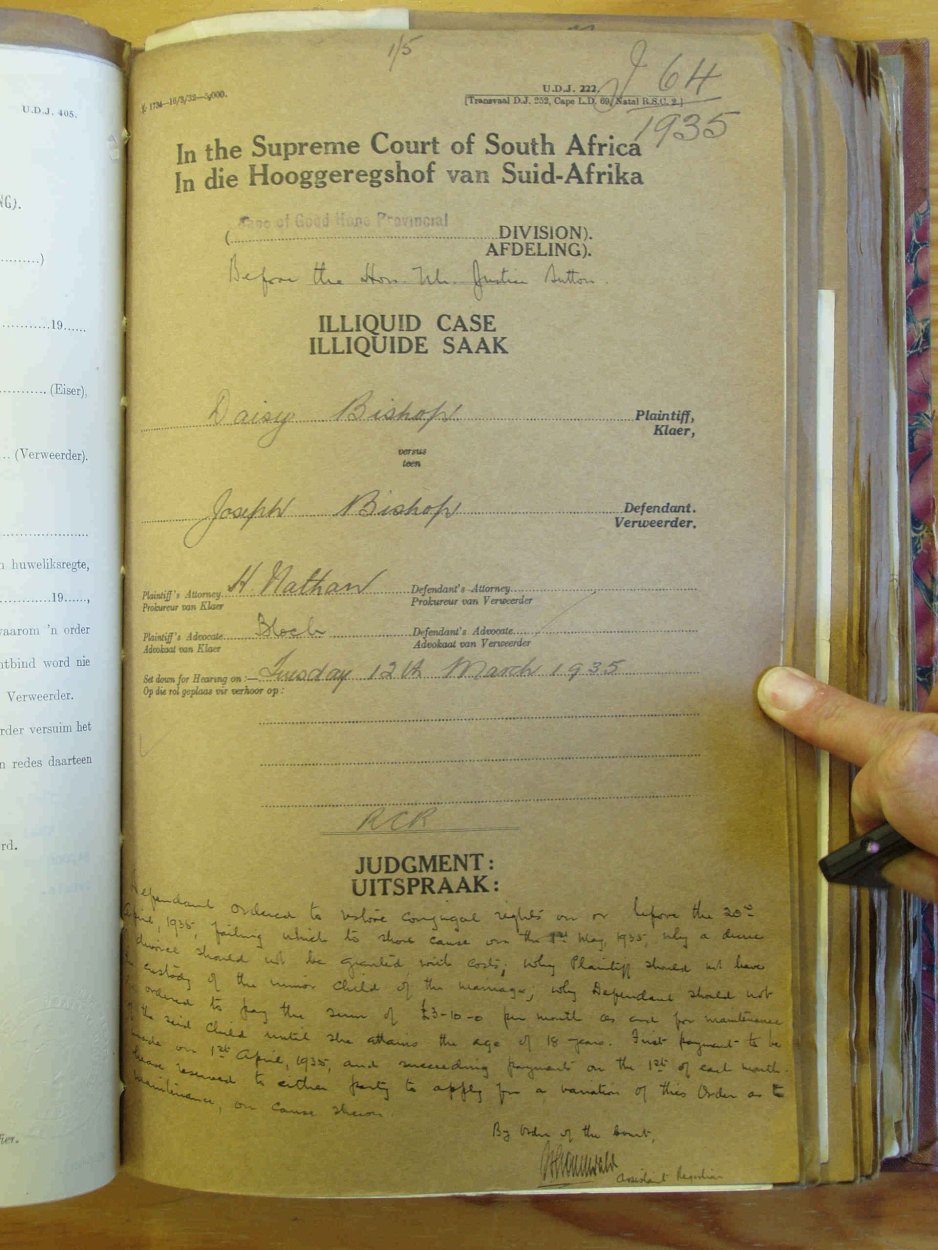 U.D.J. 405.
NG).
)
19
(Eiser),
(Verweerder).
huweliksregte,
19......,
waarom 'n order
ntbind word nie
Verweerder.
rder versuim het
n redes daarteen
rd.
1/5
1734—16/3/32—5,000.
U.D.J. 222.
[Transvaal D.J. 252, Cape L.D. 69, Natal R.S.C. 2.]
J 64
1935
In the Supreme Court of South Africa
In die Hooggeregshof van Suid-Afrika
Cape of Good Hope Provincial
(DIVISION).
AFDELING).
Before the Hon. Mr. Justice Sutton.
ILLIQUID CASE
ILLIQUIDE SAAK
Daisy Bishop Plaintiff,
Klaer,
versus
teen
Joseph Bishop Defendant.
Verweerder.
Plaintiff's Attorney H. Nathan Defendant's Attorney
Prokureur van Klaer Prokureur van Verweerder
Plaintiff's Advocate Bloch Defendant's Advocate
Advokaat van Klaer Advokaat van Verweerder
Set down for Hearing on :— Tuesday 12th March 1935
Op die rol geplaas vir verhoor op :
RCR
JUDGMENT :
UITSPRAAK :
Defendant ordered to restore conjugal rights on or before the 20th
April, 1935, failing which to show cause on the 1st May, 1935, why a decree
divorce should not be granted with costs; why Plaintiff should not have
custody of the minor child of the marriage; why Defendant should not
be ordered to pay the sum of £3-10-0 per month as and for maintenance
of the said child until she attains the age of 18 years. First payment to be
made on 1st April, 1935, and succeeding payments on the 1st of each month.
Leave reserved to either party to apply for a variation of this Order as to
maintenance, on cause shown.
By Order of the Court,
Assistant Registrar